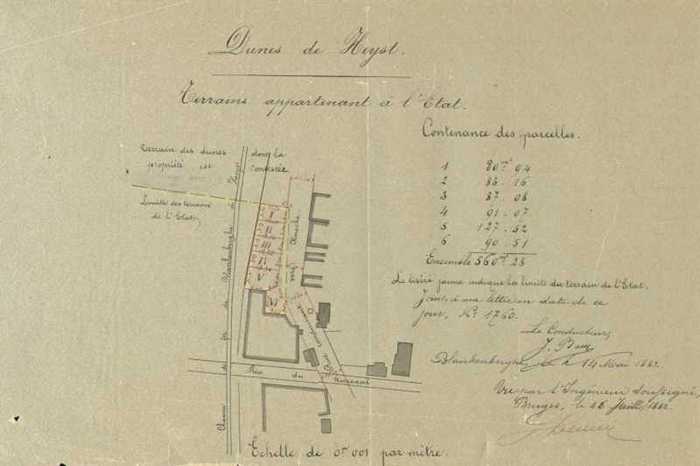 Dunes de Heyst.
Terrains appartenant à l'Etat.
Contenance des parcelles.
1 80 m² 04
2 86 . 16
3 87 . 08
4 91 . 07
5 127 . 52
6 90 . 51
Ensemble 560 m² 28
Terrain des dunes dont la
propriété est contestée
Limite des terrains
de l'Etat
I
II
III
IV
V
VI
Chemin de fer de Blankenberghe à Heyst
Rue du Kursaal
Le liséré jaune indique la limite du terrain de l'Etat.
Joint à ma lettre en date de ce
jour, N° 1760.
Le Conducteur,
Blankenberghe, le 14 Mai 1882.
Vu par l'Ingénieur soussigné,
Bruges, le 1882.
Echelle de 0m 001 par mètre.